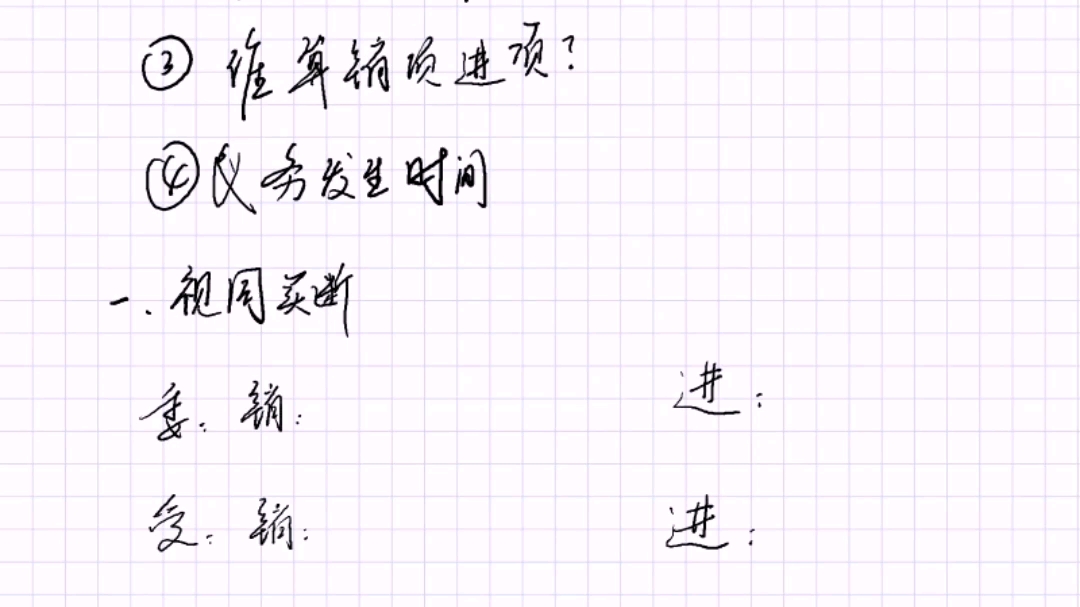 ③ 谁算销项进项?
④ 义务发生时间
一. 视同买断
委: 销: 进:
受: 销: 进: